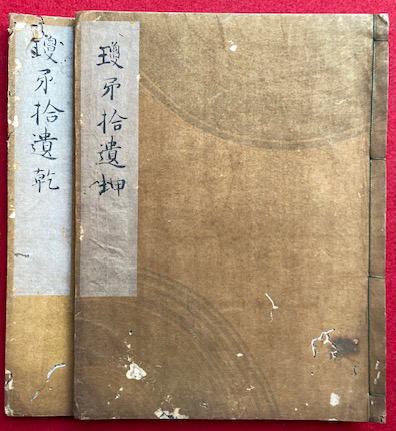 瓊矛拾遺坤
瓊矛拾遺乾